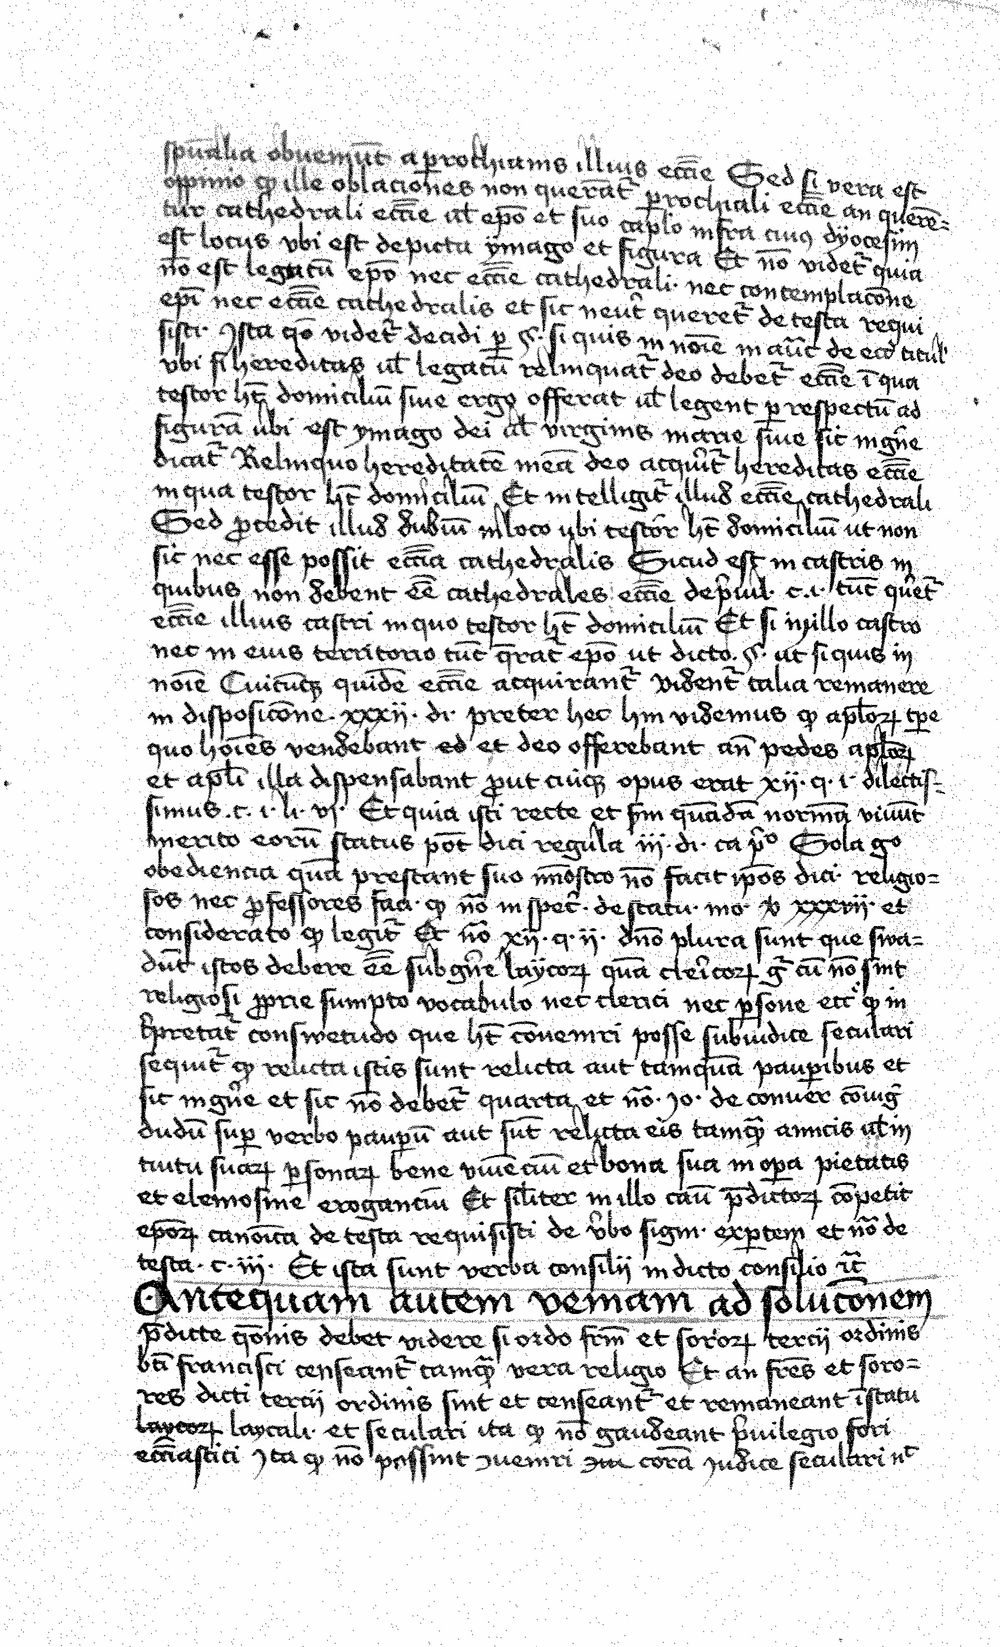 spūalia obueniūt a prochianis illius eccīe Sed si vera est
oppinio qͥ ille oblaciones non querāt᷑ prochiali eccīe an querē-
tur cathedrali eccīe ul epō et suo caplo infra cuiꝰ dyocesim
est locus vbi est depicta ymago et figura Et nō videt᷑ quia
nō est legatū epō nec eccīe cathedrali· nec contemplacōne
epī nec eccīe cathedralis et sic neut᷑ queret᷑ de testa requi
sisti· Ista qō videt᷑ decidi ꝑ §· si quis in noīe in autͨ de eccl titul
vbi si hereditas ul legatū relinquat᷑ deo debet᷑ eccīe ī qua
testor hꝫ domiciliū siue ergo offerat ul legent ꝑ respectū ad
figurā ubi est ymago dei ul virginis marie siue sic in gn̄e
dicat᷑ Relinquo hereditatē meā deo acquirit᷑ hereditas eccīe
in qua testor hꝫ domiciliū Et intelligit᷑ illud eccīe cathedrali
Sed ꝓcedit illud dubiū in loco ubi testor hꝫ domiciliū ut non
sic nec esse possit eccīa cathedralis Sicud est in castris in
quibus non debent eē cathedrales eccīe de p̄uil· c·i· tūc q̄ret᷑
eccīe illius castri in quo testor hꝫ domiciliū Et si in illo castro
nec in eius territorio tūc q̄rat᷑ epō ut dicto· §· ut si quis in
noīe Cuicūqꝫ quidē eccīe acquirant᷑ vident᷑ talia remanere
in disposicōne· xxxii· di· preter hec hm̄ videmus qͥ aploꝝ tp̄e
quo hoīes vendebant ed et deo offerebant an̄ pedes aploꝝ
et apli illa dispensabant ꝓut cuiqꝫ opus erat xii· q· i· dilectis-
simus· c· i· li· vi· Et quia isti recte et sm̄ quādā normā viuūt
merito eorū status pōt dici regula iii· di· ca p̄º Sola g̊
obediencia quā prestant suo mīstro nō facit ip̄os dici religio-
sos nec ꝓfessores faci· qͥ nō in spec᷑· de statu· mo· v xxxvii· et
considerato qͥ legit᷑ Et nō xii· q· ii· dūo plura sunt que swa-
dūt istos debere eē sub gn̄e laycoꝝ quā clericoꝝ g᷑ cū nō sint
religiosi ꝓprie sumpto vocabulo nec clerici nec ꝑsone eccͥ qͥ in
t̄pretat᷑ conswetudo que hꝫ cōueniri posse sub iudice seculari
sequit᷑ qͥ relicta istis sunt relicta aut tamquā pauꝑibus et
sic in gn̄e et sic nō debet᷑ quarta et nō· Jo· de conuer cōiug᷑
dudū suꝑ verbo pauꝑū aut sūt relicta eis tamqͣ amicis ul in
tuitu suaꝝ ꝑsonaꝝ bene viuēciū et bona sua in oꝑa pietatis
et elemosine eroganciū Et siliter in illo cāu p̄dictoꝝ cōpetit
epōꝝ canōica de testa requisisti de v̄bo sigm· exꝑtem et nō de
testa· c· iii· Et ista sunt verba consilii in dicto consilio ꝛc̄
Antequam autem veniam ad solucōnem
p̄dicte qōnis debet videre si ordo frm̄ et soroꝝ tercii ordinis
bt̄i francisci censeant᷑ tamqͣ vera religio Et an frēs et soro-
res dicti tercii ordinis sint et censeant᷑ et remaneant ī statu
laycoꝝ laycali· et seculari ita qͥ nō gaudeant p̄uilegio fori
eccīastici Ita qͥ nō possint ꝯueniri corā iudice seculari nͨ